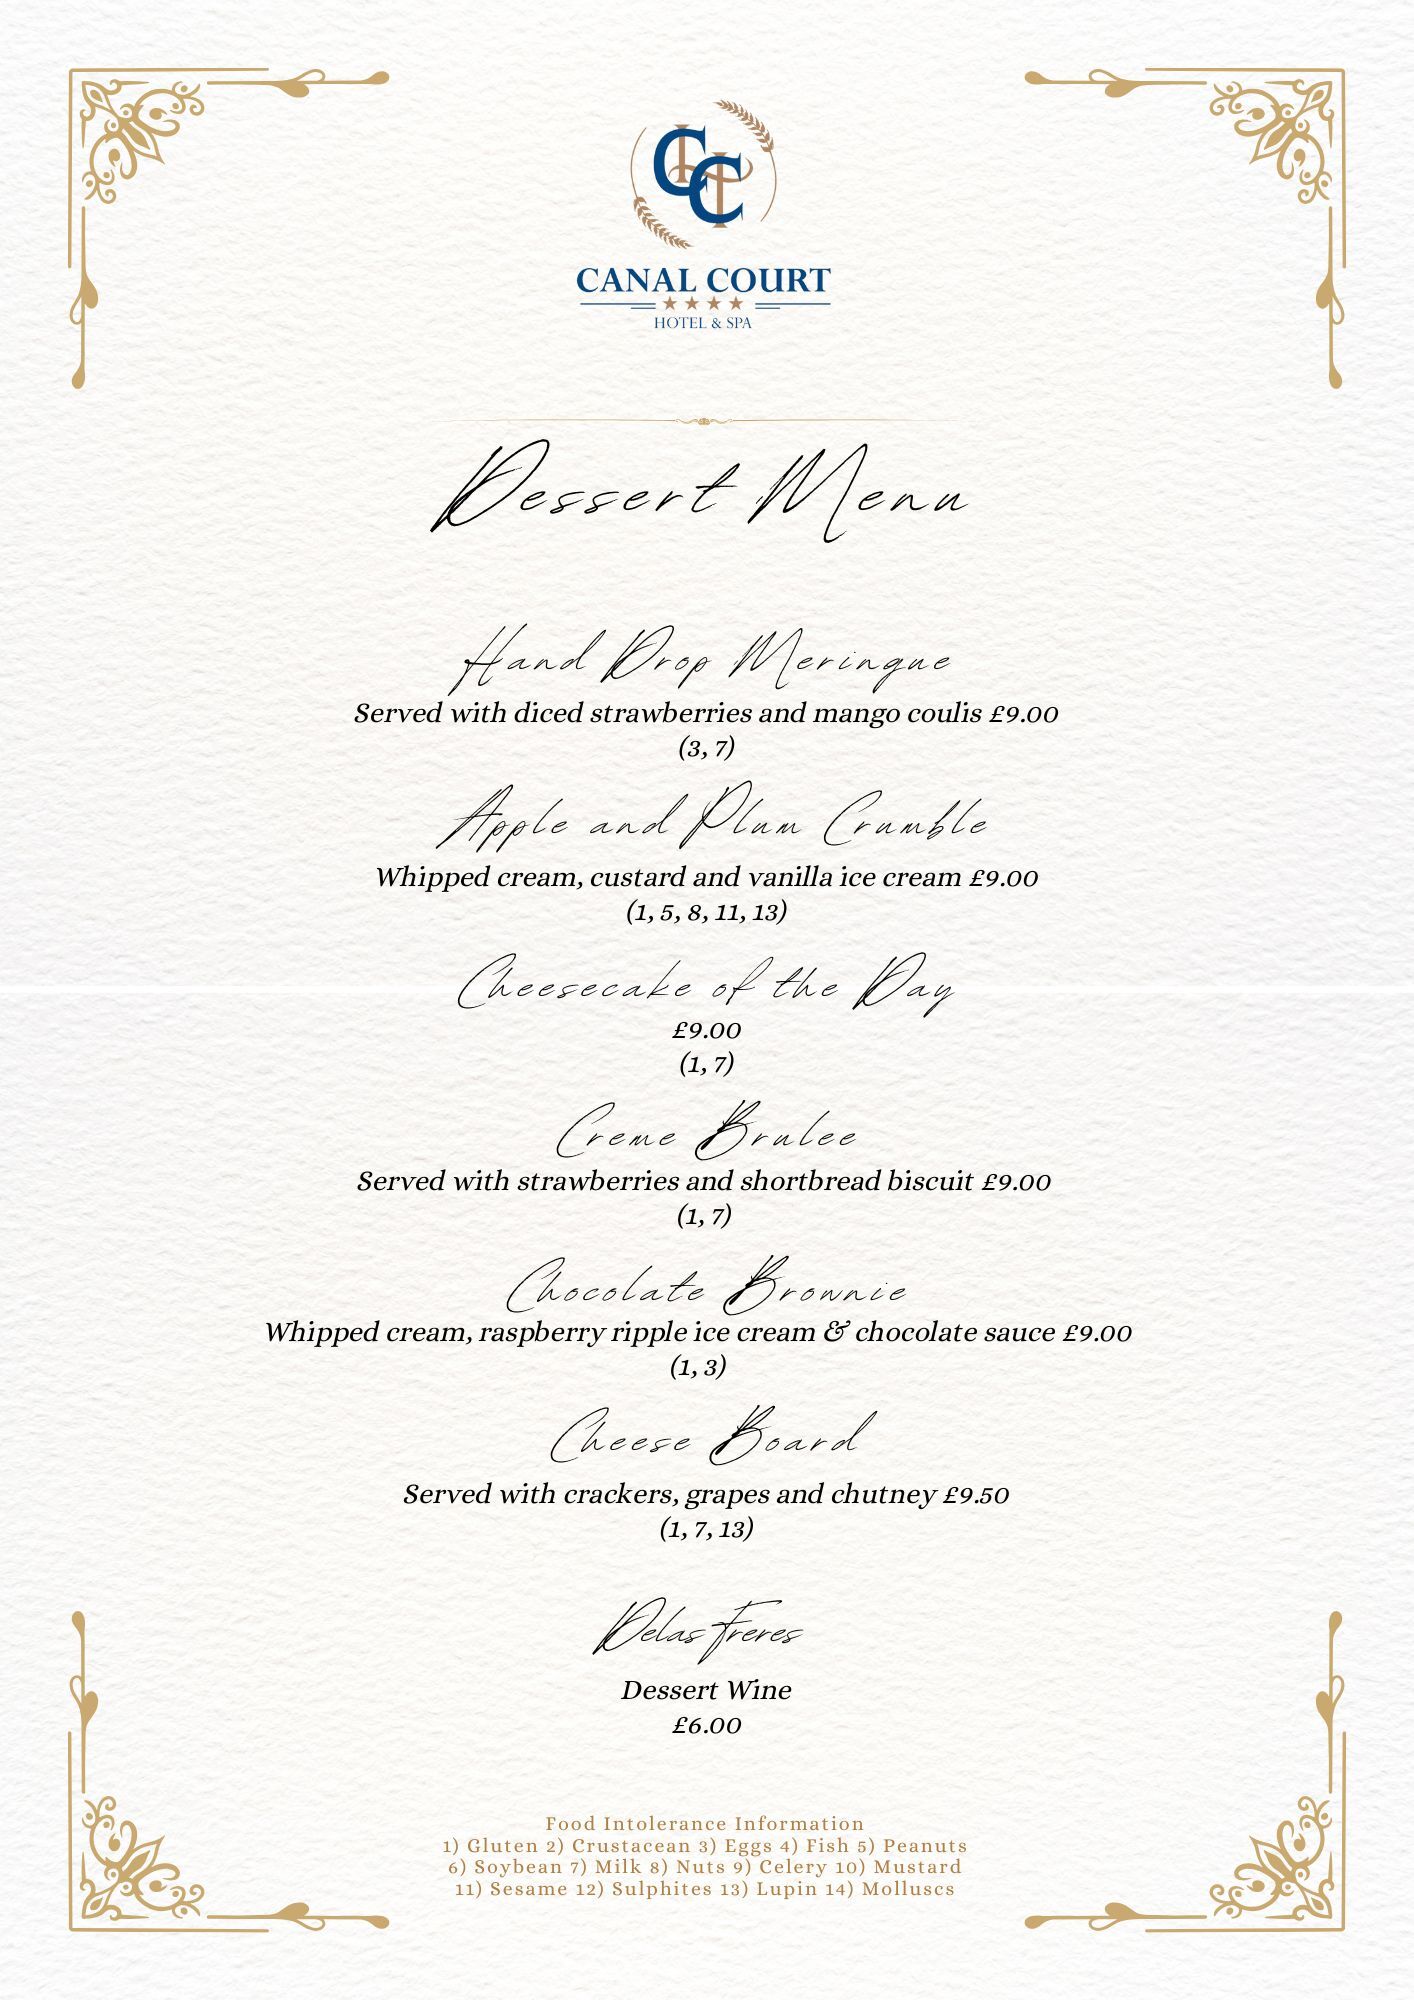 CANAL COURT
HOTEL & SPA
Dessert Menu
Hand Drop Meringue
Served with diced strawberries and mango coulis £9.00
(3, 7)
Apple and Plum Crumble
Whipped cream, custard and vanilla ice cream £9.00
(1, 5, 8, 11, 13)
Cheesecake of the Day
£9.00
(1, 7)
Creme Brulee
Served with strawberries and shortbread biscuit £9.00
(1, 7)
Chocolate Brownie
Whipped cream, raspberry ripple ice cream & chocolate sauce £9.00
(1, 3)
Cheese Board
Served with crackers, grapes and chutney £9.50
(1, 7, 13)
Delas Freres
Dessert Wine
£6.00
Food Intolerance Information
1) Gluten 2) Crustacean 3) Eggs 4) Fish 5) Peanuts
6) Soybean 7) Milk 8) Nuts 9) Celery 10) Mustard
11) Sesame 12) Sulphites 13) Lupin 14) Molluscs